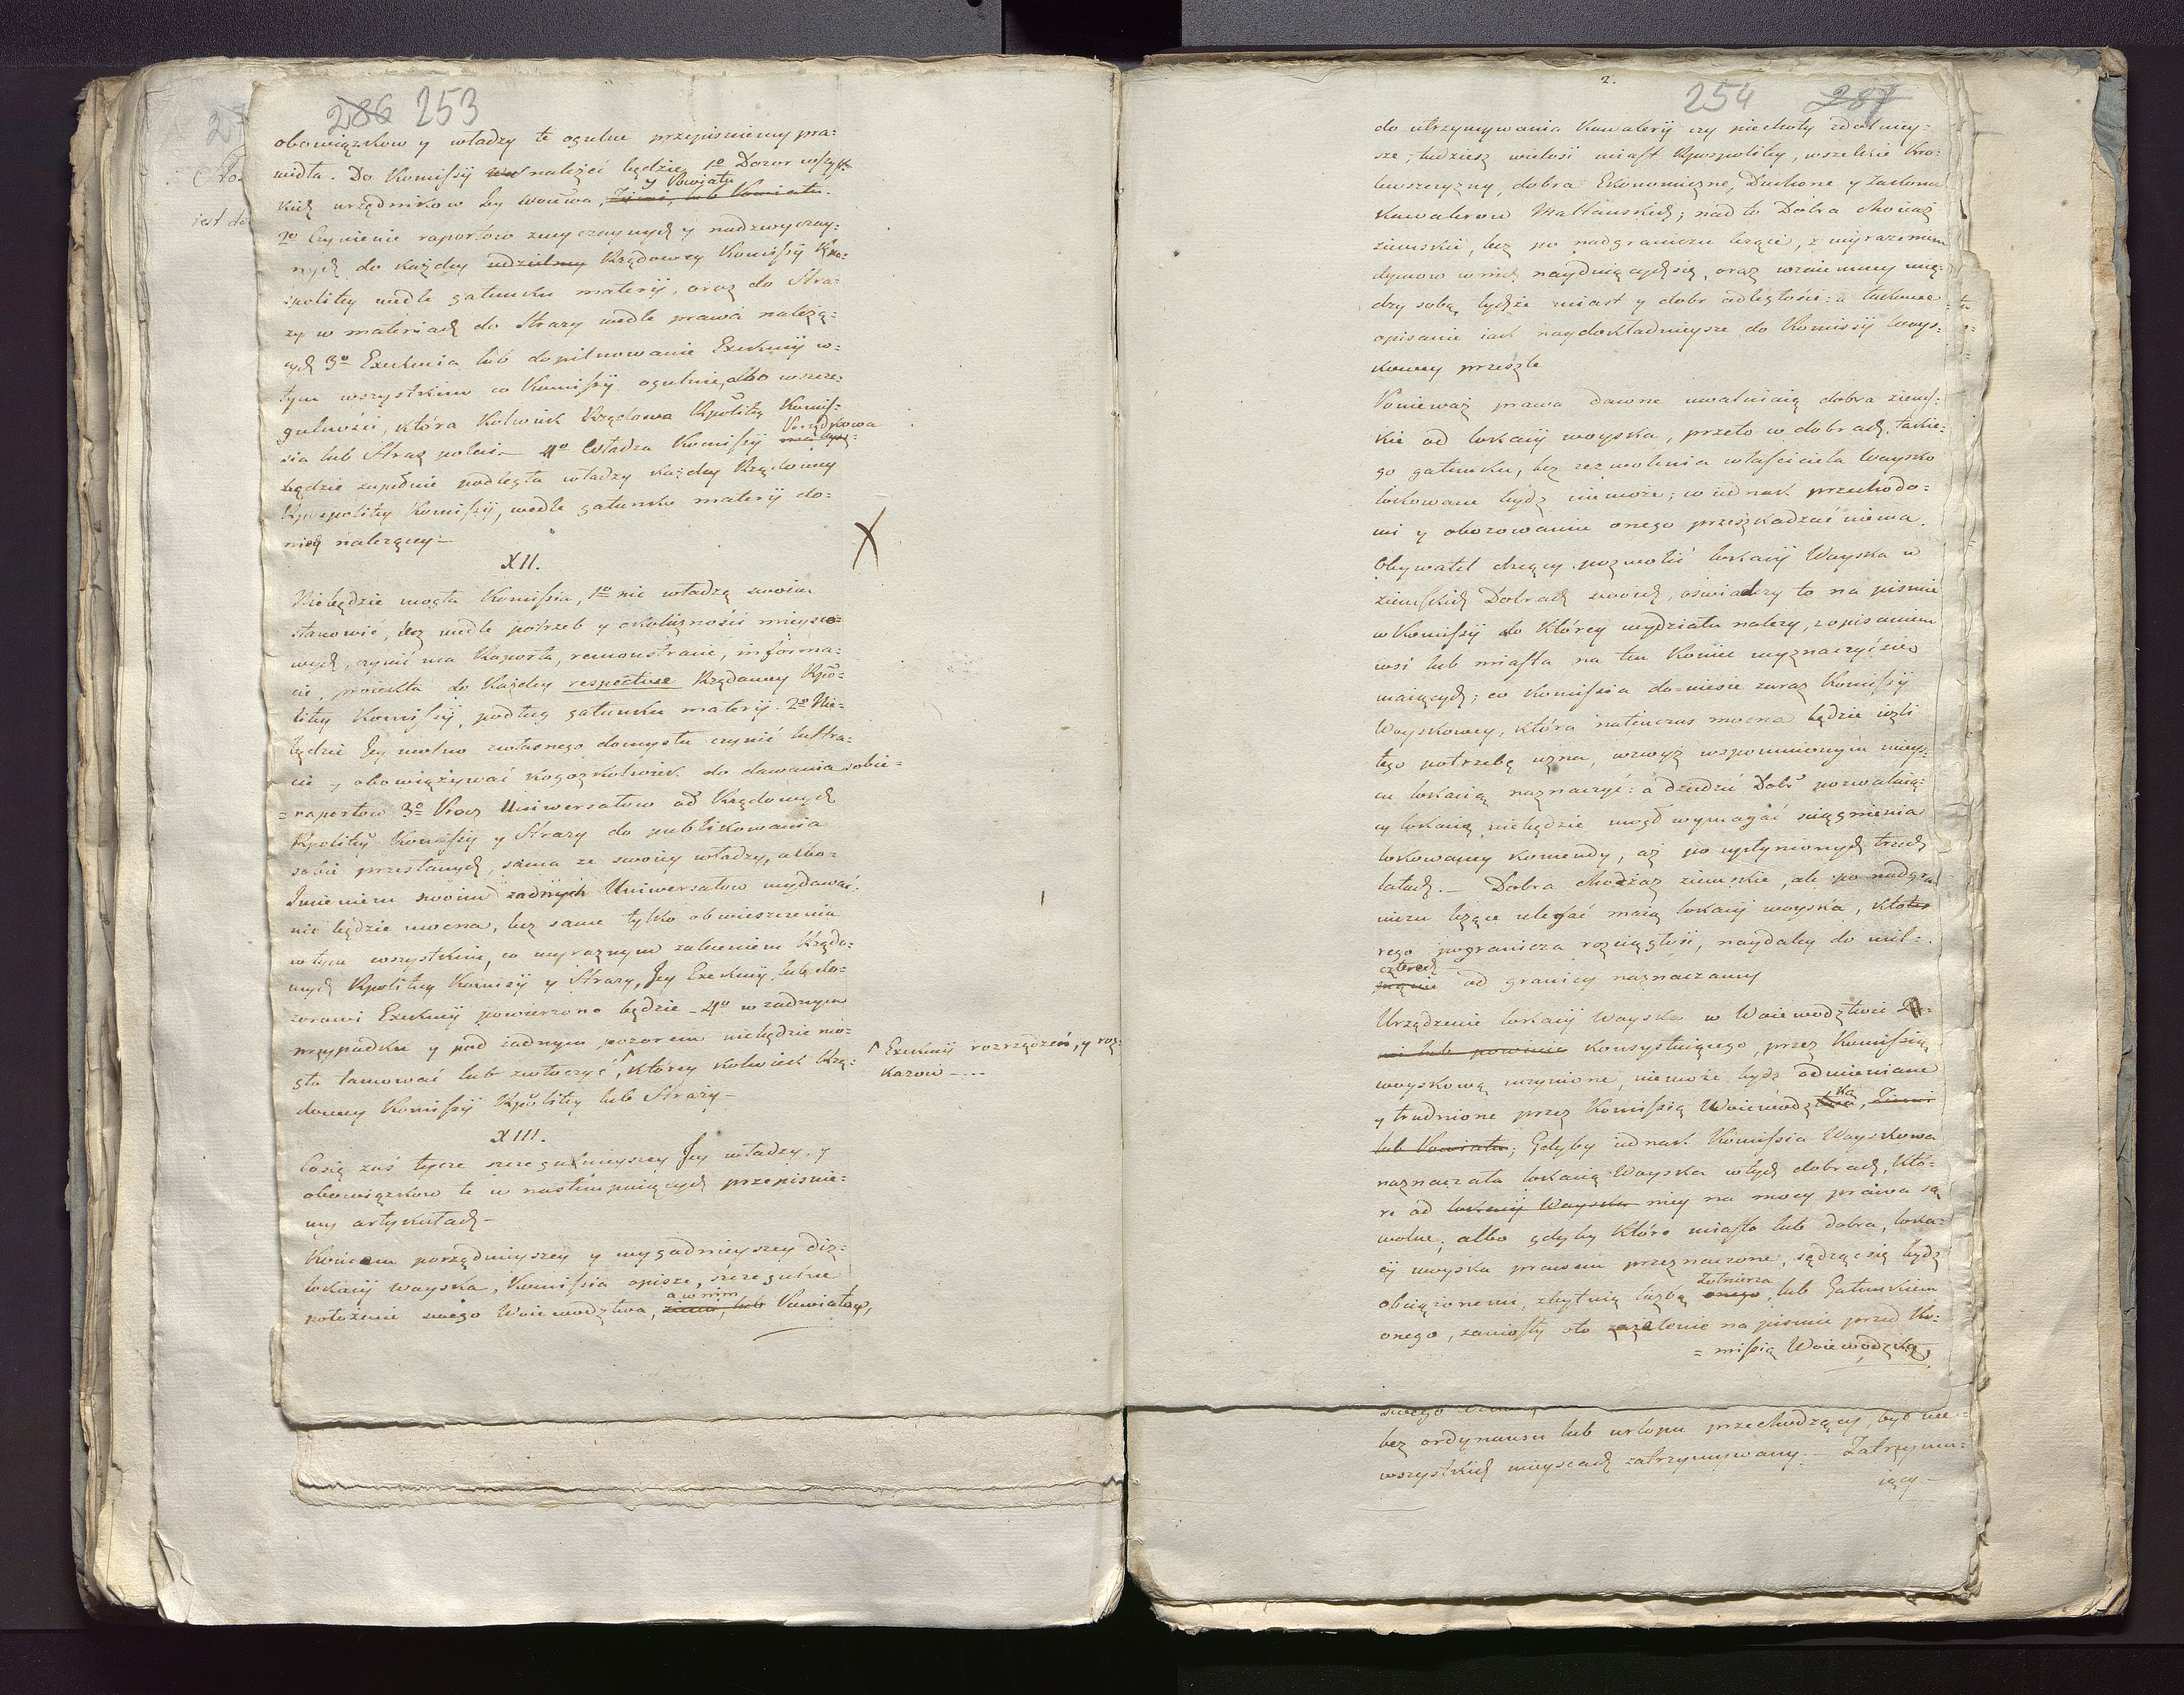 286 253
obowiązkow y władzy te ogulne przepisuiemy pra-
widła. Do Komissyi należeć będzie, 1o Dozor wszyst-
y Powiatu
kich urzędnikow Jey Woiewa, Ziemi, lub Powiatu.
2o Czynienie raportow zwyczaynych y nadzwyczay-
nych do każdey udzielney Rządowey Komissyi Rze-
spolitey wedle gatunku materyi, oraz do Stra-
ży w materiach do Straży wedle prawa należą-
cych 3o Exekucia lub dopilnowanie Exekucyi w-
tym wszystkim co Komissyi ogulnie, albo w szcze-
gulności, która kolwiek Rządowa Rpolitey Komis-
sia lub Straż poleci - 4o Władza Komissyi Porządkowa
będzie zupełnie podległa władzy każdey Rządowey
Rzespolitey Komissyi, wedle gatunku materyi do-
nich należącey -
XII.
Niebędzie mogła Komissia, 1o nic władzą swoią
stanowić, lecz wedle potrzeb y okoliczności mieysco-
wych, czynić ma Raporta, remonstracie, informa-
cie, proiekta do każdey respective Rządowey Rpo-
litey Komissyi, podług gatunku materyi. 2o Nie-
będzie Jey wolno z własnego domysłu czynić lustra-
cie y obowiązywać kogożkolwiek do dawania sobie-
= raportow 3o Procz Uniwersałow od Rządowych
Rpolitey Komissyi y Straży do publikowania
sobie przesłanych, sama ze swoiey władzy, albo-
Imieniem swoim żadnych Uniwersałow wydawać
nie będzie mocna, lecz same tylko obwieszczenia
w tym wszystkim, co wyraznym zaleceniem Rządo-
wych Rpolitey Komissyi y Straży, Jey Exekucyi, lub do-
zorowi Exekucyi powierzono będzie - 4o w żadnym
przypadku y pod żadnym pozorem niebędzie mo-
gła tamować lub zwłoczyć, ^ którey kolwiek Rzą-
^ Exekucyi rozrządzeń, y roz-
kazow - ...
dowey Komissyi Rpolitey lub Straży -
XIII.
Co się zaś tycze szczegulnieyszey Jey władzy, y
obowiązkow te w następuiących przepisuie-
my artykułach -
Końcem porządnieyszey y wygodnieyszey diz-
lokacyi woyska, Komissia opisze, szczegulne
a w nim
położenie swego Woiewodztwa, ziemi, lub Powiatow,
2.
254 287
do utrzymywania Kawaleryi czy piechoty zdolniey-
sze; tudziesz wielość miast Rzespolitey, wszelkie Kro-
lewszczyzny, dobra Ekonomiczne, Duchone y Zakonu
Kawalerow Maltanskich; nad to Dobra chociaż
ziemskie, lecz po nadgraniczu leżące, z wyrażeniem
dymow w nich nayduiących się, oraz wzaiemney mię-
dzy sobą tychże miast y dobr odległości: a takowe
opisanie iak naydokładnieysze do Komissyi Woys-
kowey przeszle
Ponieważ prawa dawne uwalniaią dobra ziems-
kie od lokacyi woyska, przeto w dobrach takie-
go gatunku, bez zezwolenia właściciela Woysko
lokowane bydz nie może; iednak przechodo-
wi y obozowaniu onego przeszkadzać niema.
Obywatel chcący pozwolić lokacyi Woyska w
ziemskich Dobrach swoich, oświadczy to na pismie
w Komissyi do którey wydziału należy, z opisaniem
wsi lub miasta na ten koniec wyznaczyć się
maiących; co Komissia do-niesie zaraz Komissyi
Woyskowey, która natenczas mocna będzie ieżli
tego potrzebę uzna, wzwyż wspomnionym miey-
scu lokacią naznaczyć: a dziedzic Dobr pozwalaią-
cy lokacią niebędzie mogł wymagać sciągnienia
lokowaney komendy, aż po upłynionych trzech
latach. - Dobra chociaż ziemskie, ale po nadgra-
niczu leżące ulegać maią lokacyi woyska, któ-
rego pogranicza rozciągłość, naydaley do mil
czterech
od granicy naznaczamy
Urządzenie lokacyi woyska w Woiewodztwie Zie-
mi lub powiecie konsystuiącego, przez Komissią
woyskową uczynione, niemoże bydz odmieniane
y trudnione przez Komissią Woiewodzką, Ziemi
lub Powiatu; Gdyby iednak Komissia Woyskowa
naznaczała lokacią Woyska w tych dobrach, któ-
re od lokacyi Woyska niey na mocy prawa są
wolne; albo gdyby które miasto lub dobra, loka-
cyi woyska prawem przeznaczone, sądząc się bydz
żołnierza
obciążonemi, zbytnią liczbą onego, lub Gatunkiem
onego, zaniosły oto zażalenie na pismie przed Ko-
= missią Woiewodzką,
swego
bez ordynansu lub urlopu przechodzący, był we-
wszystkich mieyscach zatrzymywany. - Zatrzymu-
iący -